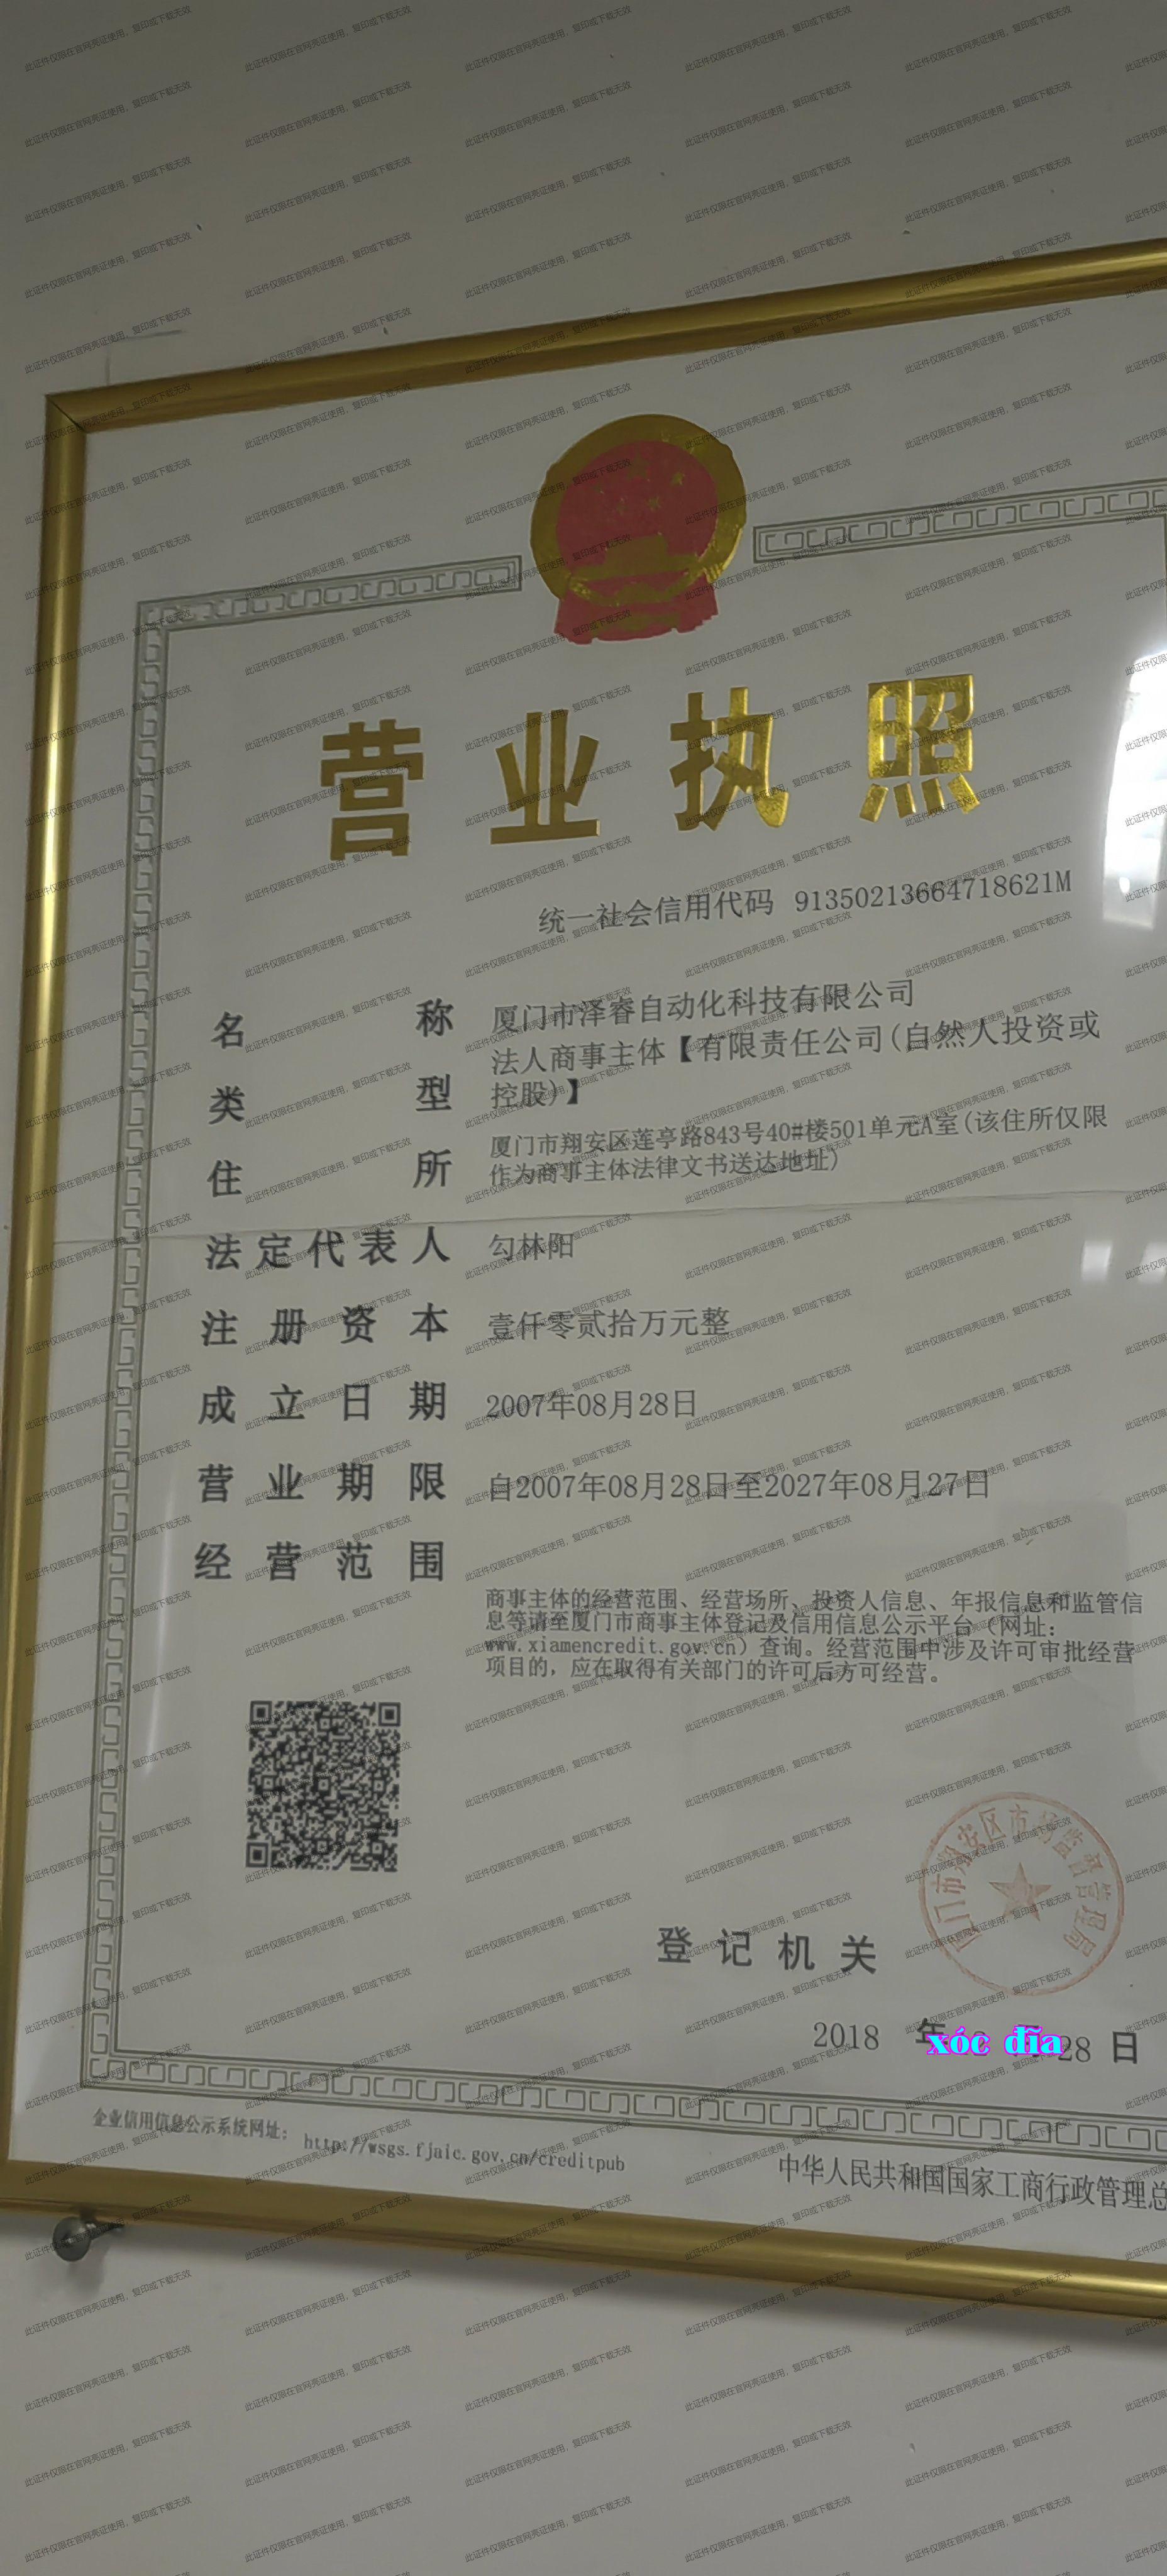 营业执照
统一社会信用代码 91350213664718621M
名称 厦门市泽睿自动化科技有限公司
类型 法人商事主体【有限责任公司(自然人投资或
控股)】
住所 厦门市翔安区莲亭路843号40#楼501单元A室(该住所仅限
作为商事主体法律文书送达地址)
法定代表人 勾林阳
注册资本 壹仟零贰拾万元整
成立日期 2007年08月28日
营业期限 自2007年08月28日至2027年08月27日
经营范围
商事主体的经营范围、经营场所、投资人信息、年报信息和监管信
息等请至厦门市商事主体登记及信用信息公示平台（网址：
www.xiamencredit.gov.cn）查询。经营范围中涉及许可审批经营
项目的，应在取得有关部门的许可后方可经营。
厦门市翔安区市场监督管理局
登记机关
2018 年 月 28 日
xóc đĩa
企业信用信息公示系统网址： http://wsgs.fjaic.gov.cn/creditpub
中华人民共和国国家工商行政管理总
此证件仅限在官网亮证使用，复印或下载无效